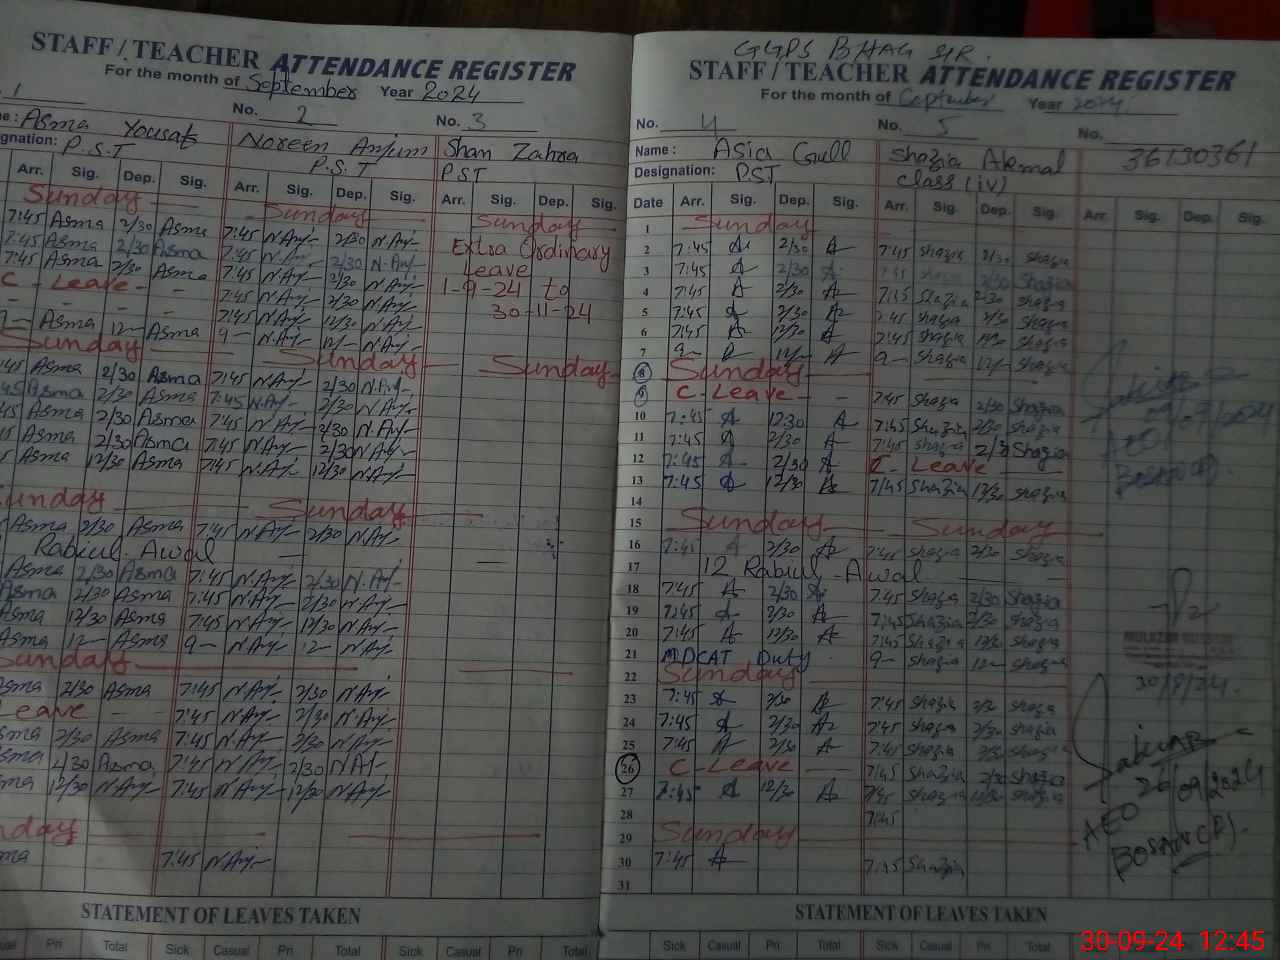 STAFF / TEACHER ATTENDANCE REGISTER
For the month of September Year 2024
1 No. 2 No. 3
Asma Yousaf Noreen Anjum Shan Zahra
Designation: P.S.T P.S.T PST
Arr. Sig. Dep. Sig. Arr. Sig. Dep. Sig. Arr. Sig. Dep. Sig.
Sunday Sunday Sunday
7:45 Asma 2/30 Asma 7:45 N.Anj 2/30 N.Anj Extra Ordinary
7:45 Asma 2/30 Asma 7:45 N.Anj 2/30 N.Anj Leave
7:45 Asma 2/30 Asma 7:45 N.Anj 2/30 N.Anj 1-9-24 to
C - Leave - - 7:45 N.Anj 2/30 N.Anj 30-11-24
- - - - 7:45 N.Anj 12/30 N.Anj
Asma 12 Asma 9 N.Anj 12 N.Anj
Sunday Sunday Sunday
:45 Asma 2/30 Asma 7:45 N.Anj 2/30 N.Anj
:45 Asma 2/30 Asma 7:45 N.Anj 2/30 N.Anj
:45 Asma 2/30 Asma 7:45 N.Anj 2/30 N.Anj
Asma 2/30 Asma 7:45 N.Anj 2/30 N.Anj
Asma 12/30 Asma 7:45 N.Anj 12/30 N.Anj
Sunday Sunday
Asma 2/30 Asma 7:45 N.Anj 2/30 N.Anj
Rabiul Awal
Asma 2/30 Asma 7:45 N.Anj 2/30 N.Anj
Asma 2/30 Asma 7:45 N.Anj 2/30 N.Anj
Asma 12/30 Asma 7:45 N.Anj 12/30 N.Anj
Asma 12 Asma 9 N.Anj 12 N.Anj
Sunday
Asma 2/30 Asma 7:45 N.Anj 2/30 N.Anj
Leave 7:45 N.Anj 2/30 N.Anj
2/30 Asma 7:45 N.Anj 2/30 N.Anj
2/30 Asma 7:45 N.Anj 2/30 N.Anj
12/30 N.Anj 7:45 N.Anj 12/30 N.Anj
Sunday
7:45 N.Anj
STATEMENT OF LEAVES TAKEN
Casual Pri Total Sick Casual Pri Total Sick Casual Pri Total
GGPS BHAG SIR.
STAFF / TEACHER ATTENDANCE REGISTER
For the month of September Year 2024
No. 4 No. 5 No.
Name: Asia Gull Shazia Akmal 36130361
Designation: PST Class (iv)
Date Arr. Sig. Dep. Sig. Arr. Sig. Dep. Sig. Arr. Sig. Dep. Sig.
1 Sunday
2 7:45 A 2/30 A 7:45 Shazia 2/30 Shazia
3 7:45 A 2/30 A 7:45 Shazia 2/30 Shazia
4 7:45 A 2/30 A 7:45 Shazia 2/30 Shazia
5 7:45 A 2/30 A 7:45 Shazia 2/30 Shazia
6 7:45 A 12/30 A 7:45 Shazia 12/30 Shazia
7 9 A 12 A 9 Shazia 12 Shazia
8 Sunday
9 C - Leave - 7:45 Shazia 2/30 Shazia 09/09/2024
10 7:45 A 12:30 A 7:45 Shazia 2/30 Shazia
11 7:45 A 2/30 A 7:45 Shazia 2/30 Shazia AEO
12 7:45 A 2/30 A C - Leave
13 7:45 A 12/30 A 7:45 Shazia 12/30 Shazia
14
15 Sunday Sunday
16 7:45 A 2/30 A 7:45 Shazia 2/30 Shazia
17 12 Rabiul - Awal
18 7:45 A 2/30 A 7:45 Shazia 2/30 Shazia
19 7:45 A 2/30 A 7:45 Shazia 2/30 Shazia
20 7:45 A 12/30 A 7:45 Shazia 12/30 Shazia
21 MDCAT Duty 9 Shazia 12 Shazia
22 Sunday 30/9/24.
23 7:45 A 2/30 A 7:45 Shazia 2/30 Shazia
24 7:45 A 2/30 A 7:45 Shazia 2/30 Shazia
25 7:45 A 2/30 A 7:45 Shazia 2/30 Shazia
26 C - Leave 7:45 Shazia 2/30 Shazia 26/09/2024
27 7:45 A 12/30 A 7:45 Shazia 12/30 Shazia
28 7:45 AEO
29 Sunday
30 7:45 A 7:45 Shazia
31
STATEMENT OF LEAVES TAKEN
Sick Casual Pri Total Sick Casual Pri Total Sick
30-09-24 12:45